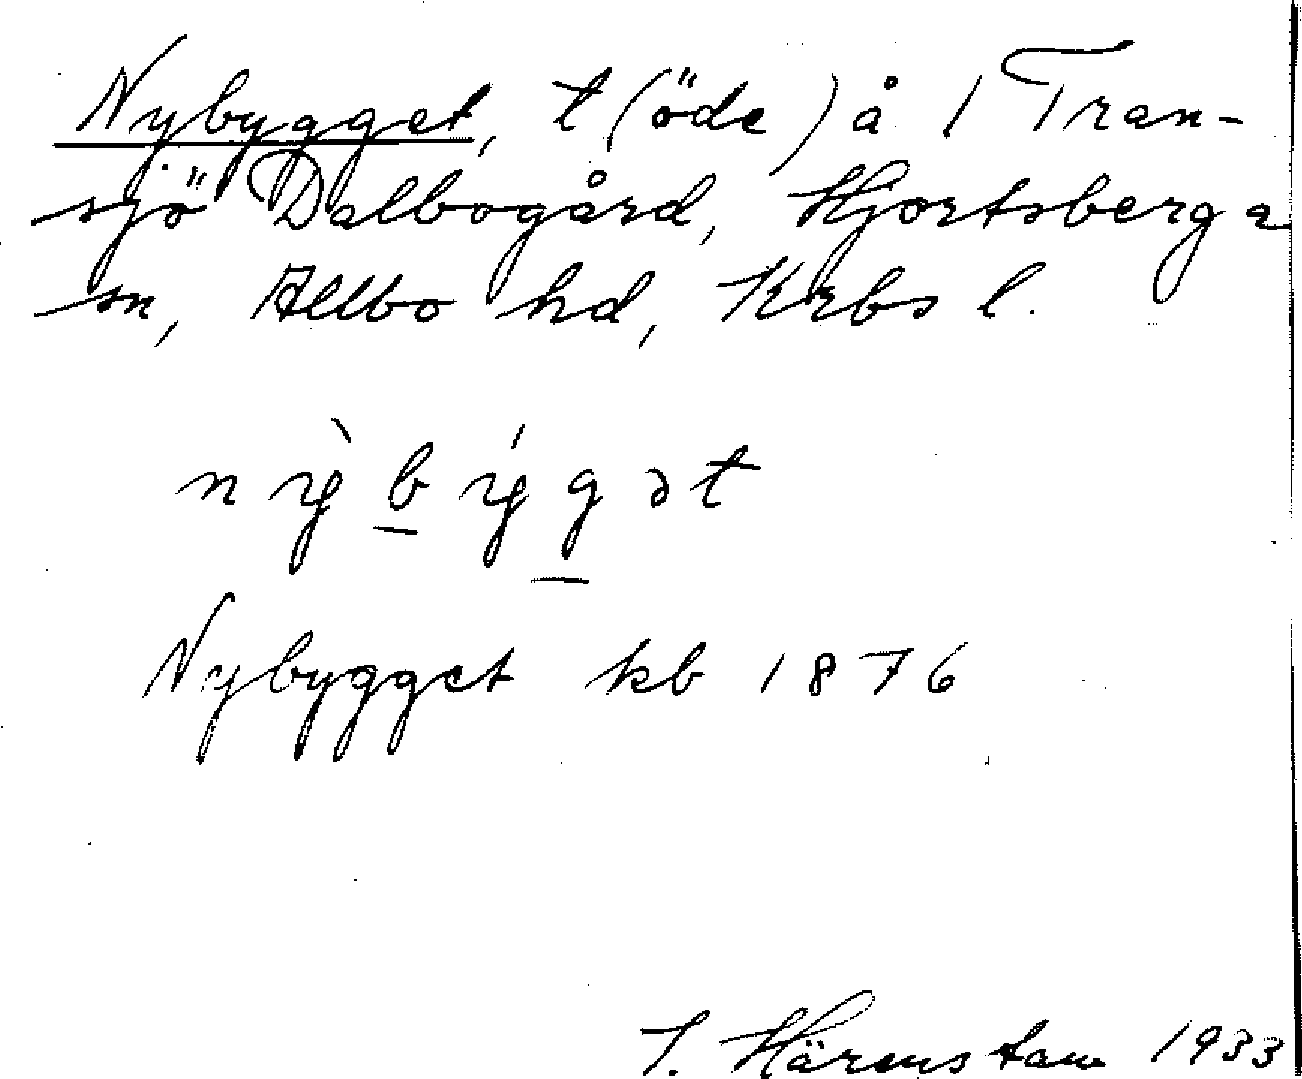 Nybygget, t (öde) å 1 Tran-
sjö Dalbogård, Hjortsberga
sn, Allbo hd, Krbs l.
nỳbýgət
Nybygget kb 1876
I. Härenstam 1933